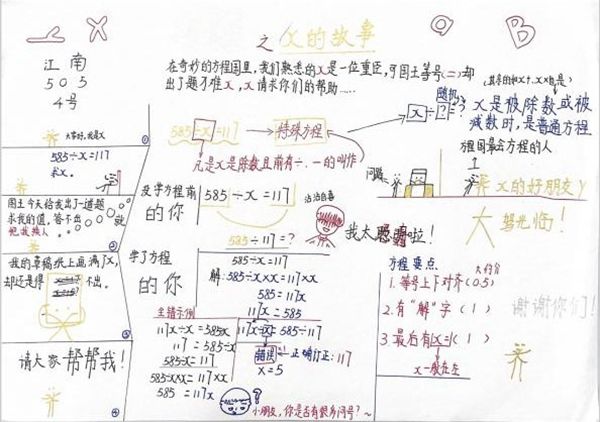 X
之 X的故事
a
B
江南
505
4号
在奇妙的方程国里,我们熟悉的x是一位重臣,可国王等号(=)却
出了题不难x,x请求你们的帮助……
大家好,我是x
585÷x=117
求x。
国王今天给我出了一道题
求我的值,答不出
他就换人
我的草稿纸上画满了x,
却还是得
不出。
请大家帮帮我!
①
②
③
④
585÷x=117
特殊方程
凡是x是除数且前有÷、一的叫作
随机
x÷?=?
x是被除数或被
减数时,是普通方程
没学方程前
的你
585÷x=117
沾沾自喜
585÷117=?
我太聪明啦!
学了方程
的你
585÷x=117
解:585÷x×x=117×x
585=117x
117x=585
117x÷x=585÷117
错误
正确订正:117
x=5
主错示例
117x÷x=585x
117=585÷x
585÷x=117
585÷x×x=117×x
585=117x
小朋友,你是否有很多问号?~
方程国最会方程的人
问题
x的好朋友y
大驾光临!
方程要点
1.等号上下对齐(0.5)
大约分
2.有“解”字(1)
3.最后有x=(1)
x一般在左
谢谢你们!